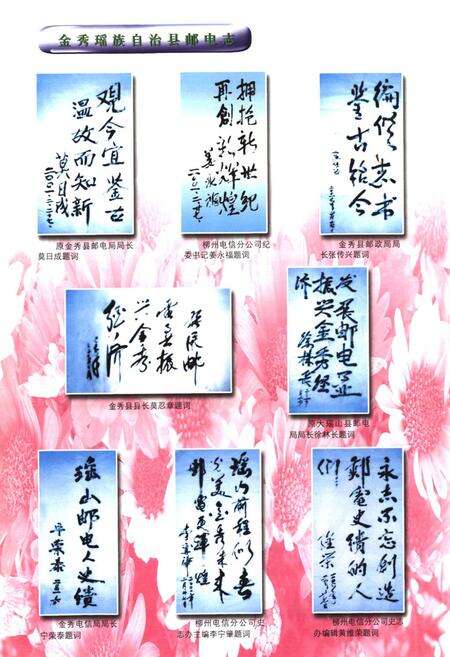 金秀瑶族自治县邮电志
观今宜鉴古
温故而知新
莫日成
二〇〇一·二·二七
原金秀县邮电局局长
莫日成题词
拥抱新世纪
再创新辉煌
姜永福
柳州电信分公司纪
委书记姜永福题词
编修志书
鉴古铭今
金秀县邮政局局
长张传兴题词
发展邮电
振兴金秀
经济
金秀县县长莫忍章题词
发展邮电业
振兴金秀经
济
徐林长
原大瑶山县邮电
局局长徐林长题词
瑶山邮电人史绩
宁荣泰
金秀电信局局长
宁荣泰题词
瑶山前程似春
光美金秀未来
邮电更辉煌
李宁肇
柳州电信分公司史
志办主编李宁肇题词
永志不忘创造
邮电史绩的人
们
维荣
柳州电信分公司史志
办编辑黄维荣题词